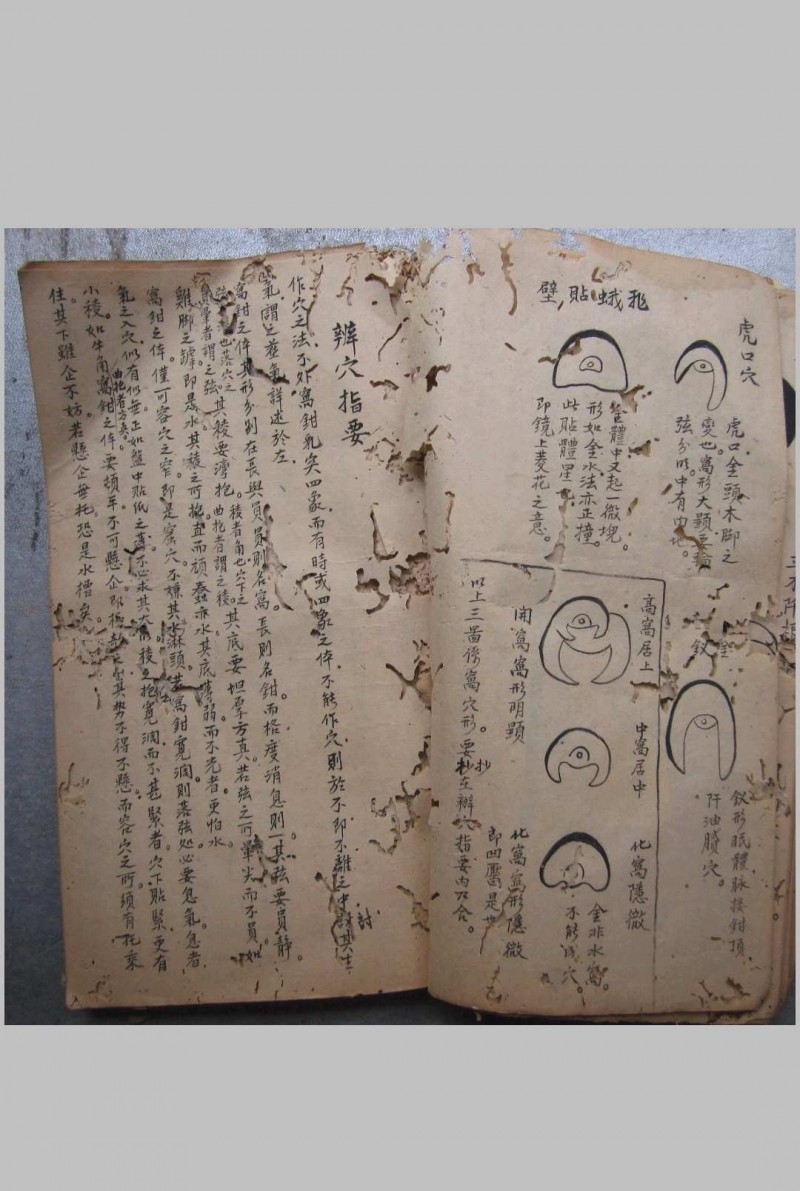 虎口穴
虎口金頭木脚之
变也。窩形大顆
弦分明。中有肉地。
飛蛾貼壁
體中又起一微塊。
形如金水法亦正撞。
此貼體星
即鏡上菱花之意。
金
釵
釵形
體脉接鉗頂
油臘穴。
高窩居上
開窩窩形明顆
中窩居中
化窩隱微
化窩窩形隱微
即凹靨是也
金非水窩。
不能成穴。
以上三啚係窩穴形。要抄
抄在辨穴指要内乃合。
辨穴指要
作穴之法。不外窩鉗乳突四象。而有時或四象之体。不能作穴。則於不即不離之中討其生
氣。謂之葢氣。詳述於左。
窩鉗之体其形分别在長與員。員則名窩。長則名鉗。而格度消息則一。其弦要員静。
也。落穴之
暈者謂之弦。其稜要灣抱。稜者角也。穴下之
曲抱者謂之稜。其底要坦平方真。若弦之可暈尖而不員。如
雞脚之罅。即是水。其稜之可抱直而頑。蠢亦水。其底
弱而不光者。更怕水。
窩鉗之体。僅可容穴之窄。即是窩穴。不嫌其水淋頭。若窩鉗寬濶。則落弦処必要息氣。息者
氣之入穴。似有似無。正如盤中貼紙之
不必求其大
稜之抱寬濶而不甚緊者。穴下貼緊。更有
曲抱者方
小稜。如牛角窩鉗之体。要頓平。不可懸企。即
其勢不得不懸。而容穴之所。須有托來
住。其下雖企不妨。若懸企無托。恐是水槽矣。